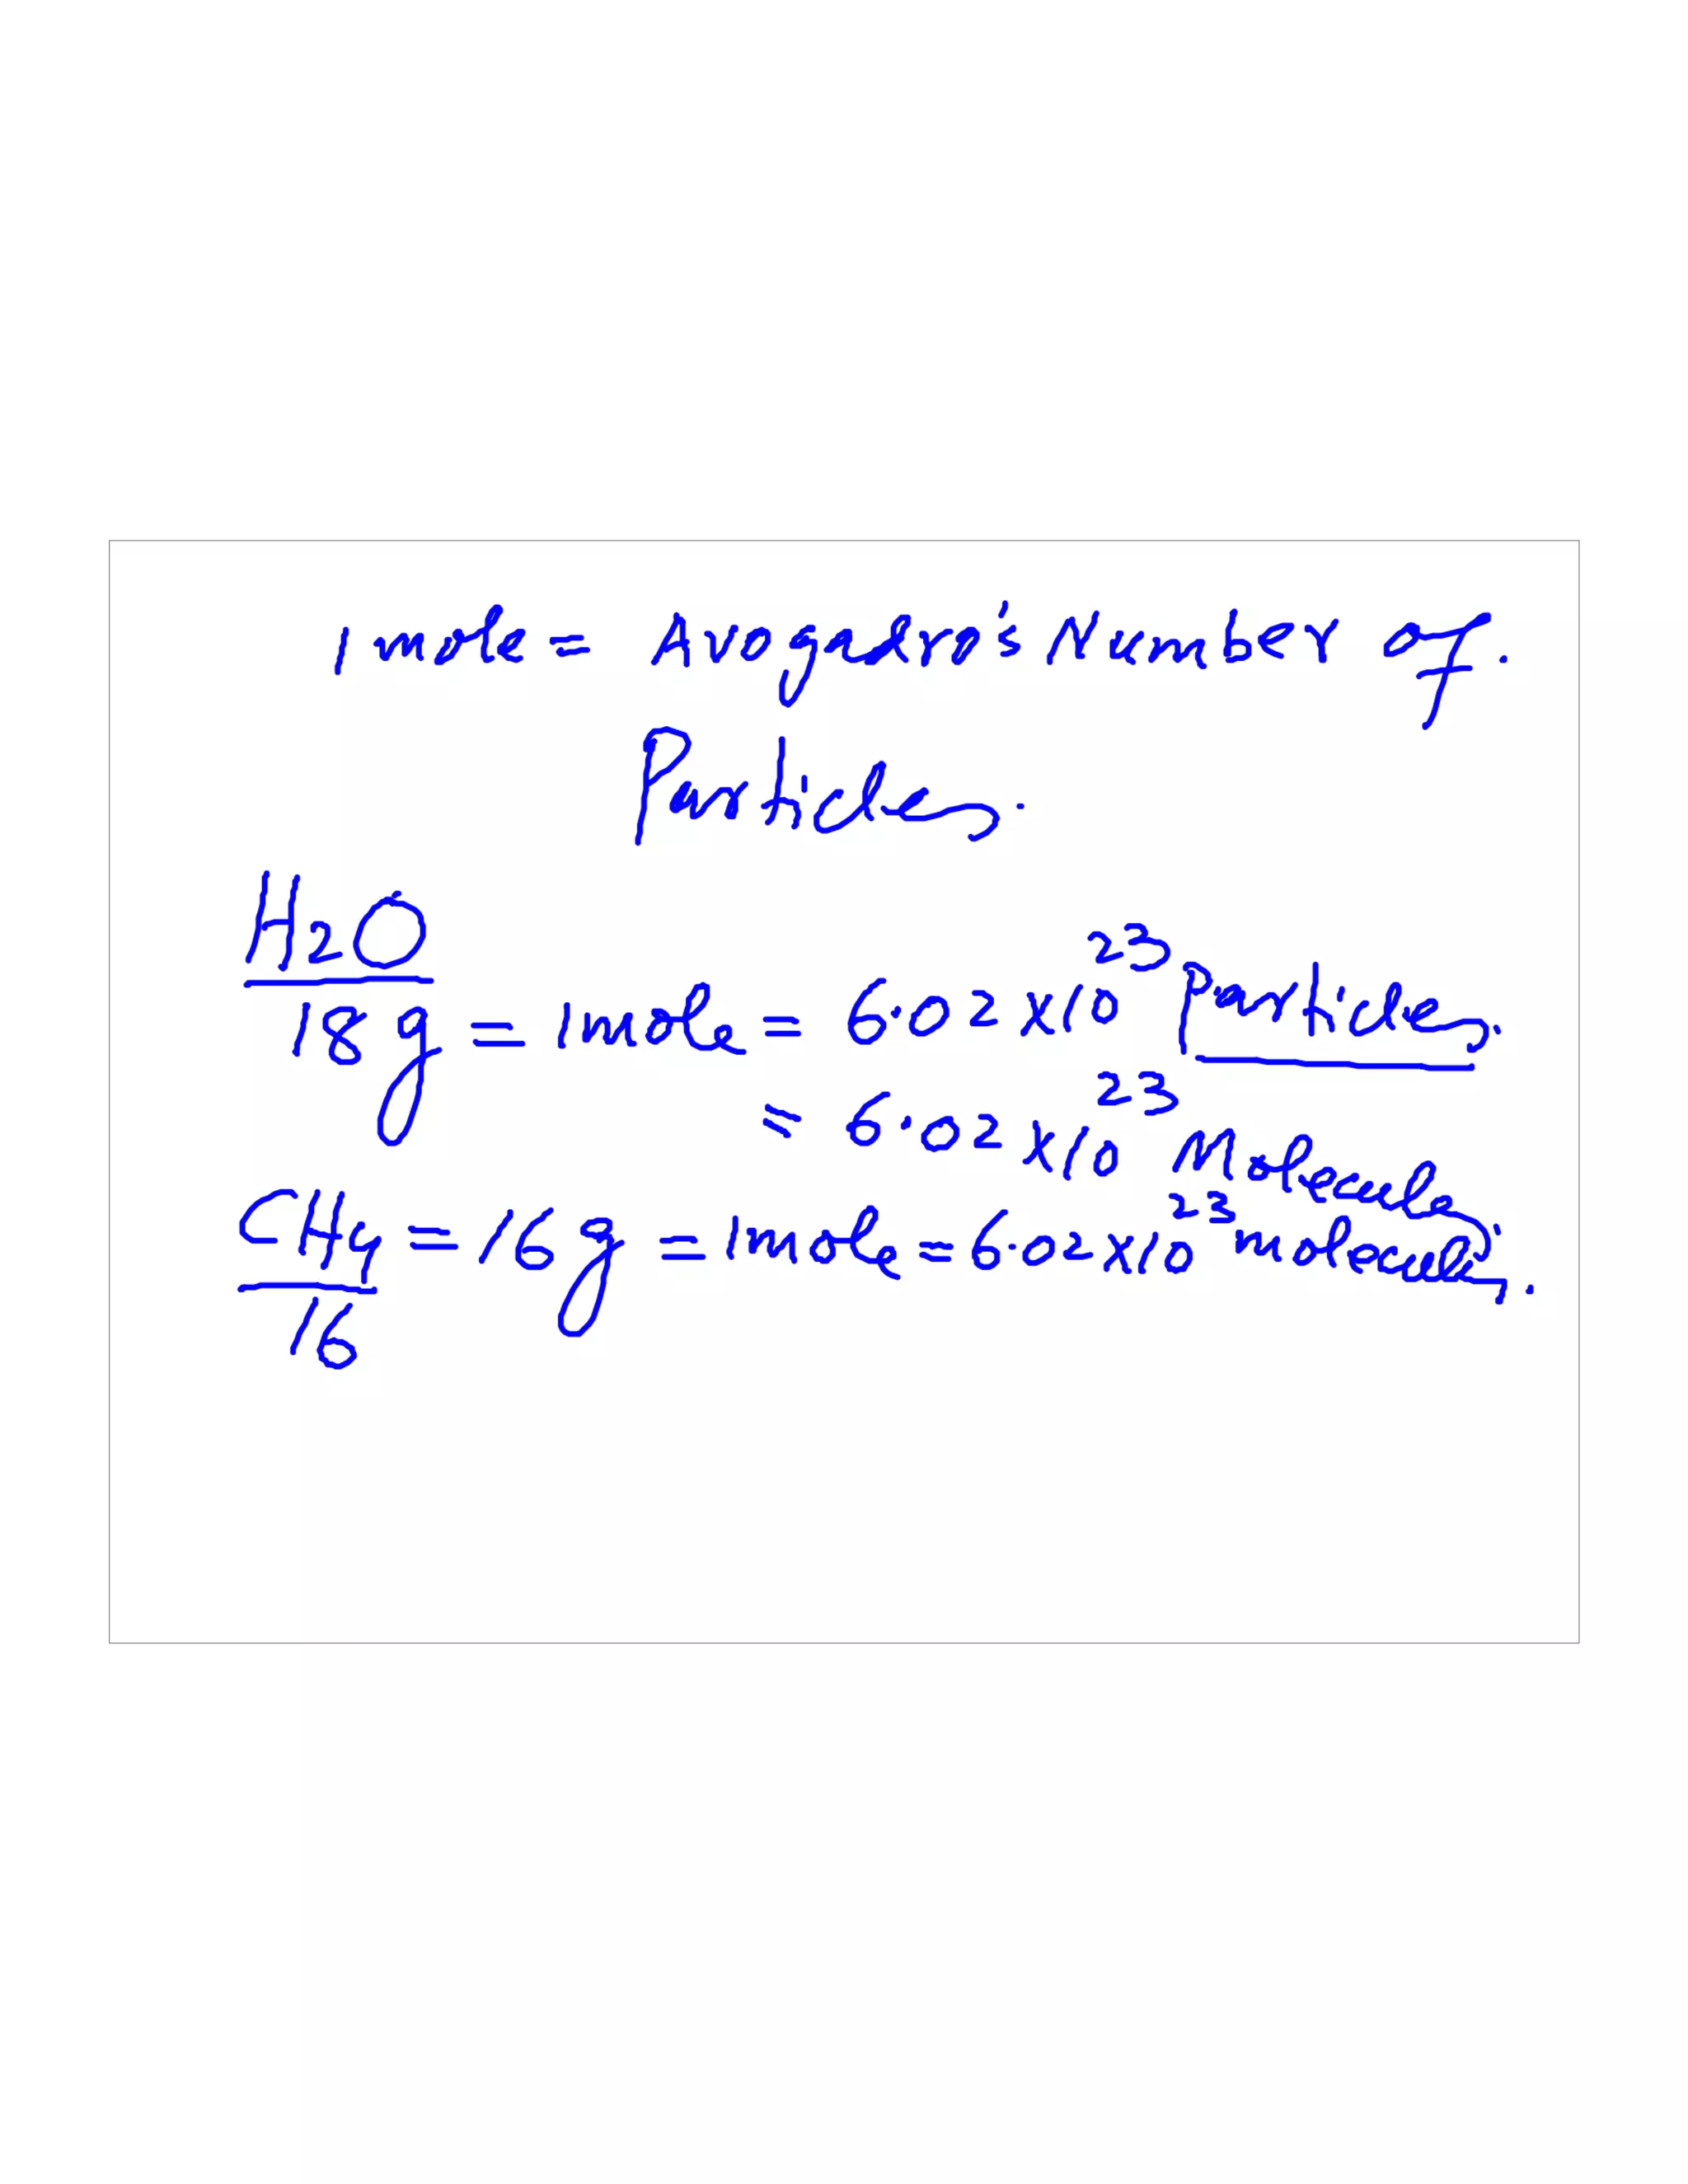 1 mole = Avogadro's Number of.
Particles.
H2O
18g = 1 mole = 6.02 x 10^23 Particles.
= 6.02 x 10^23 Molecules.
CH4 = 16g = 1 mole = 6.02 x 10^23 molecules.
16